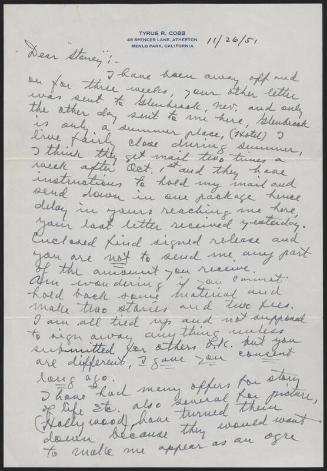 TYRUS R. COBB
48 SPENCER LANE, ATHERTON
MENLO PARK, CALIFORNIA
11/26/51
Dear "Stoney":-
I have been away off and
on for three weeks, your other letter
was sent to Glenbrook, Nev. and only
the other day sent to me here, Glenbrook
is only a summer place, (Hotel) I
live fairly close during summer,
I think they get mail two times a
week after Oct. 1st and they have
instructions to hold my mail and
send down in one package hence
delay in yours reaching me here,
your last letter received yesterday.
Enclosed find signed release and
you are not to send me, any part
of the amount you receive.
Am wondering if you cannot
hold back some material and
make two stories and two fees.
I am all tied up and not supposed
to sign away anything unless
submitted for others O.K. but you
are different, I gave you consent
long ago.
I have had many offers for story
of life etc. also several for picture,
(Hollywood) have turned them
down because they would want
to make me appear as an ogre